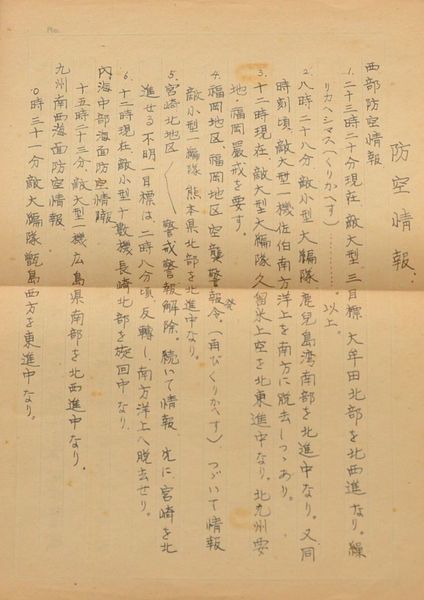 防空情報.
西部防空情報
1. 二十三時二十分現在 敵大型三目標 大牟田北部を北西進なり。繰
リカヘシマス(くりかへす)………。以上。
2. 八時二十八分 敵小型大編隊 鹿児島湾南部を北進中なり。又同
時刻頃、敵大型一機 佐伯南方洋上を南方に脱去しつゝあり。
3. 十二時現在、敵大型大編隊 久留米上空を北東進中なり。北九州要
地・福岡厳戒を要す。
4. 福岡地区 福岡地区 空襲警報発令。(再びくりかへす) つゞいて情報
敵小型一編隊 熊本県北部を北進中なり。
5. 宮崎北地区 警戒警報解除。続いて情報、先に宮崎を北
進せる不明一目標は二時八分頃反転し、南方洋上へ脱去せり。
6. 十二時現在 敵小型十数機 長崎北部を旋回中なり。
内海中部海面防空情報
十五時二十三分、敵大型一機 広島県南部を北西進中なり。
九州南西海面防空情報
〇時三十一分 敵大編隊 甑島西方を東進中なり。